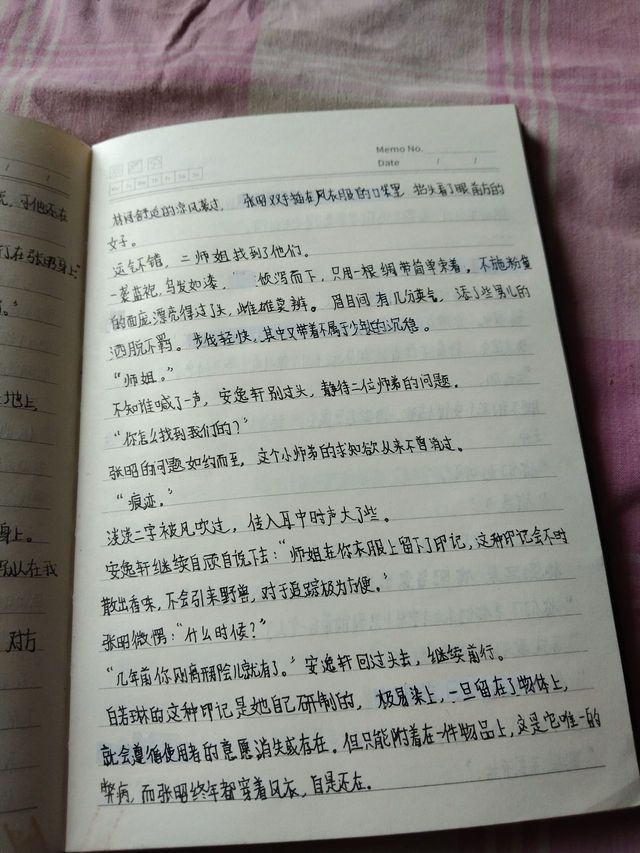 Memo No.
Date / /
Mo Tu We Th Fr Sa Su
林间舒适的凉风袭过，张昭双手插在风衣服的口袋里，抬头看了眼前方的
女子。
运气不错，二师姐找到了他们。
一袭蓝袍，乌发如漆，倾泻而下，只用一根绸带简单束着。不施粉黛
的面庞漂亮得过了头，雌雄莫辨。眉目间有几分英气，添了些男儿的
洒脱不羁。步伐轻快，其中又带着不属于少年的沉稳。
“师姐。”
不知谁喊了一声，安逸轩别过头，静待二位师弟的问题。
“你怎么找到我们的？”
张昭的问题如约而至，这个小师弟的求知欲从来不曾消过。
“痕迹。”
淡淡二字被风吹过，传入耳中时声大了些。
安逸轩继续自顾自说下去：“师姐在你衣服上留下了印记，这种印记会不时
散出香味，不会引来野兽，对于追踪极为方便。”
张昭微愣：“什么时候？”
“几年前你刚离那险儿就有了。”安逸轩回过头去，继续前行。
白若琳的这种印记是她自己研制的，极易染上，一旦留在了物体上，
就会遵循使用者的意愿消失或存在。但只能附着在一件物品上，这是它唯一的
弊病，而张昭终年都穿着风衣，自是还在。
竟，可他还在
了在张昭身上，
。”
地上，
身上。
所以在我
对方